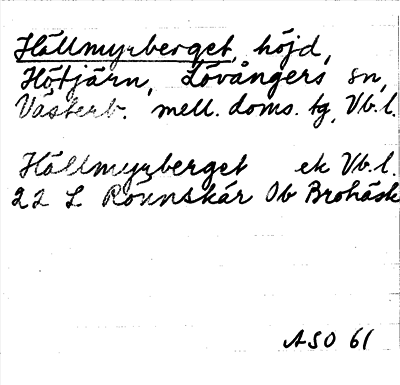 Hällmyrberget, höjd,
Hötjärn, Lövångers sn,
Västerb. mell. doms. tg, Vb.l.
Hällmyrberget ek Vb.l.
22 L Rönnskär Ob Brohäsk
ASO 61